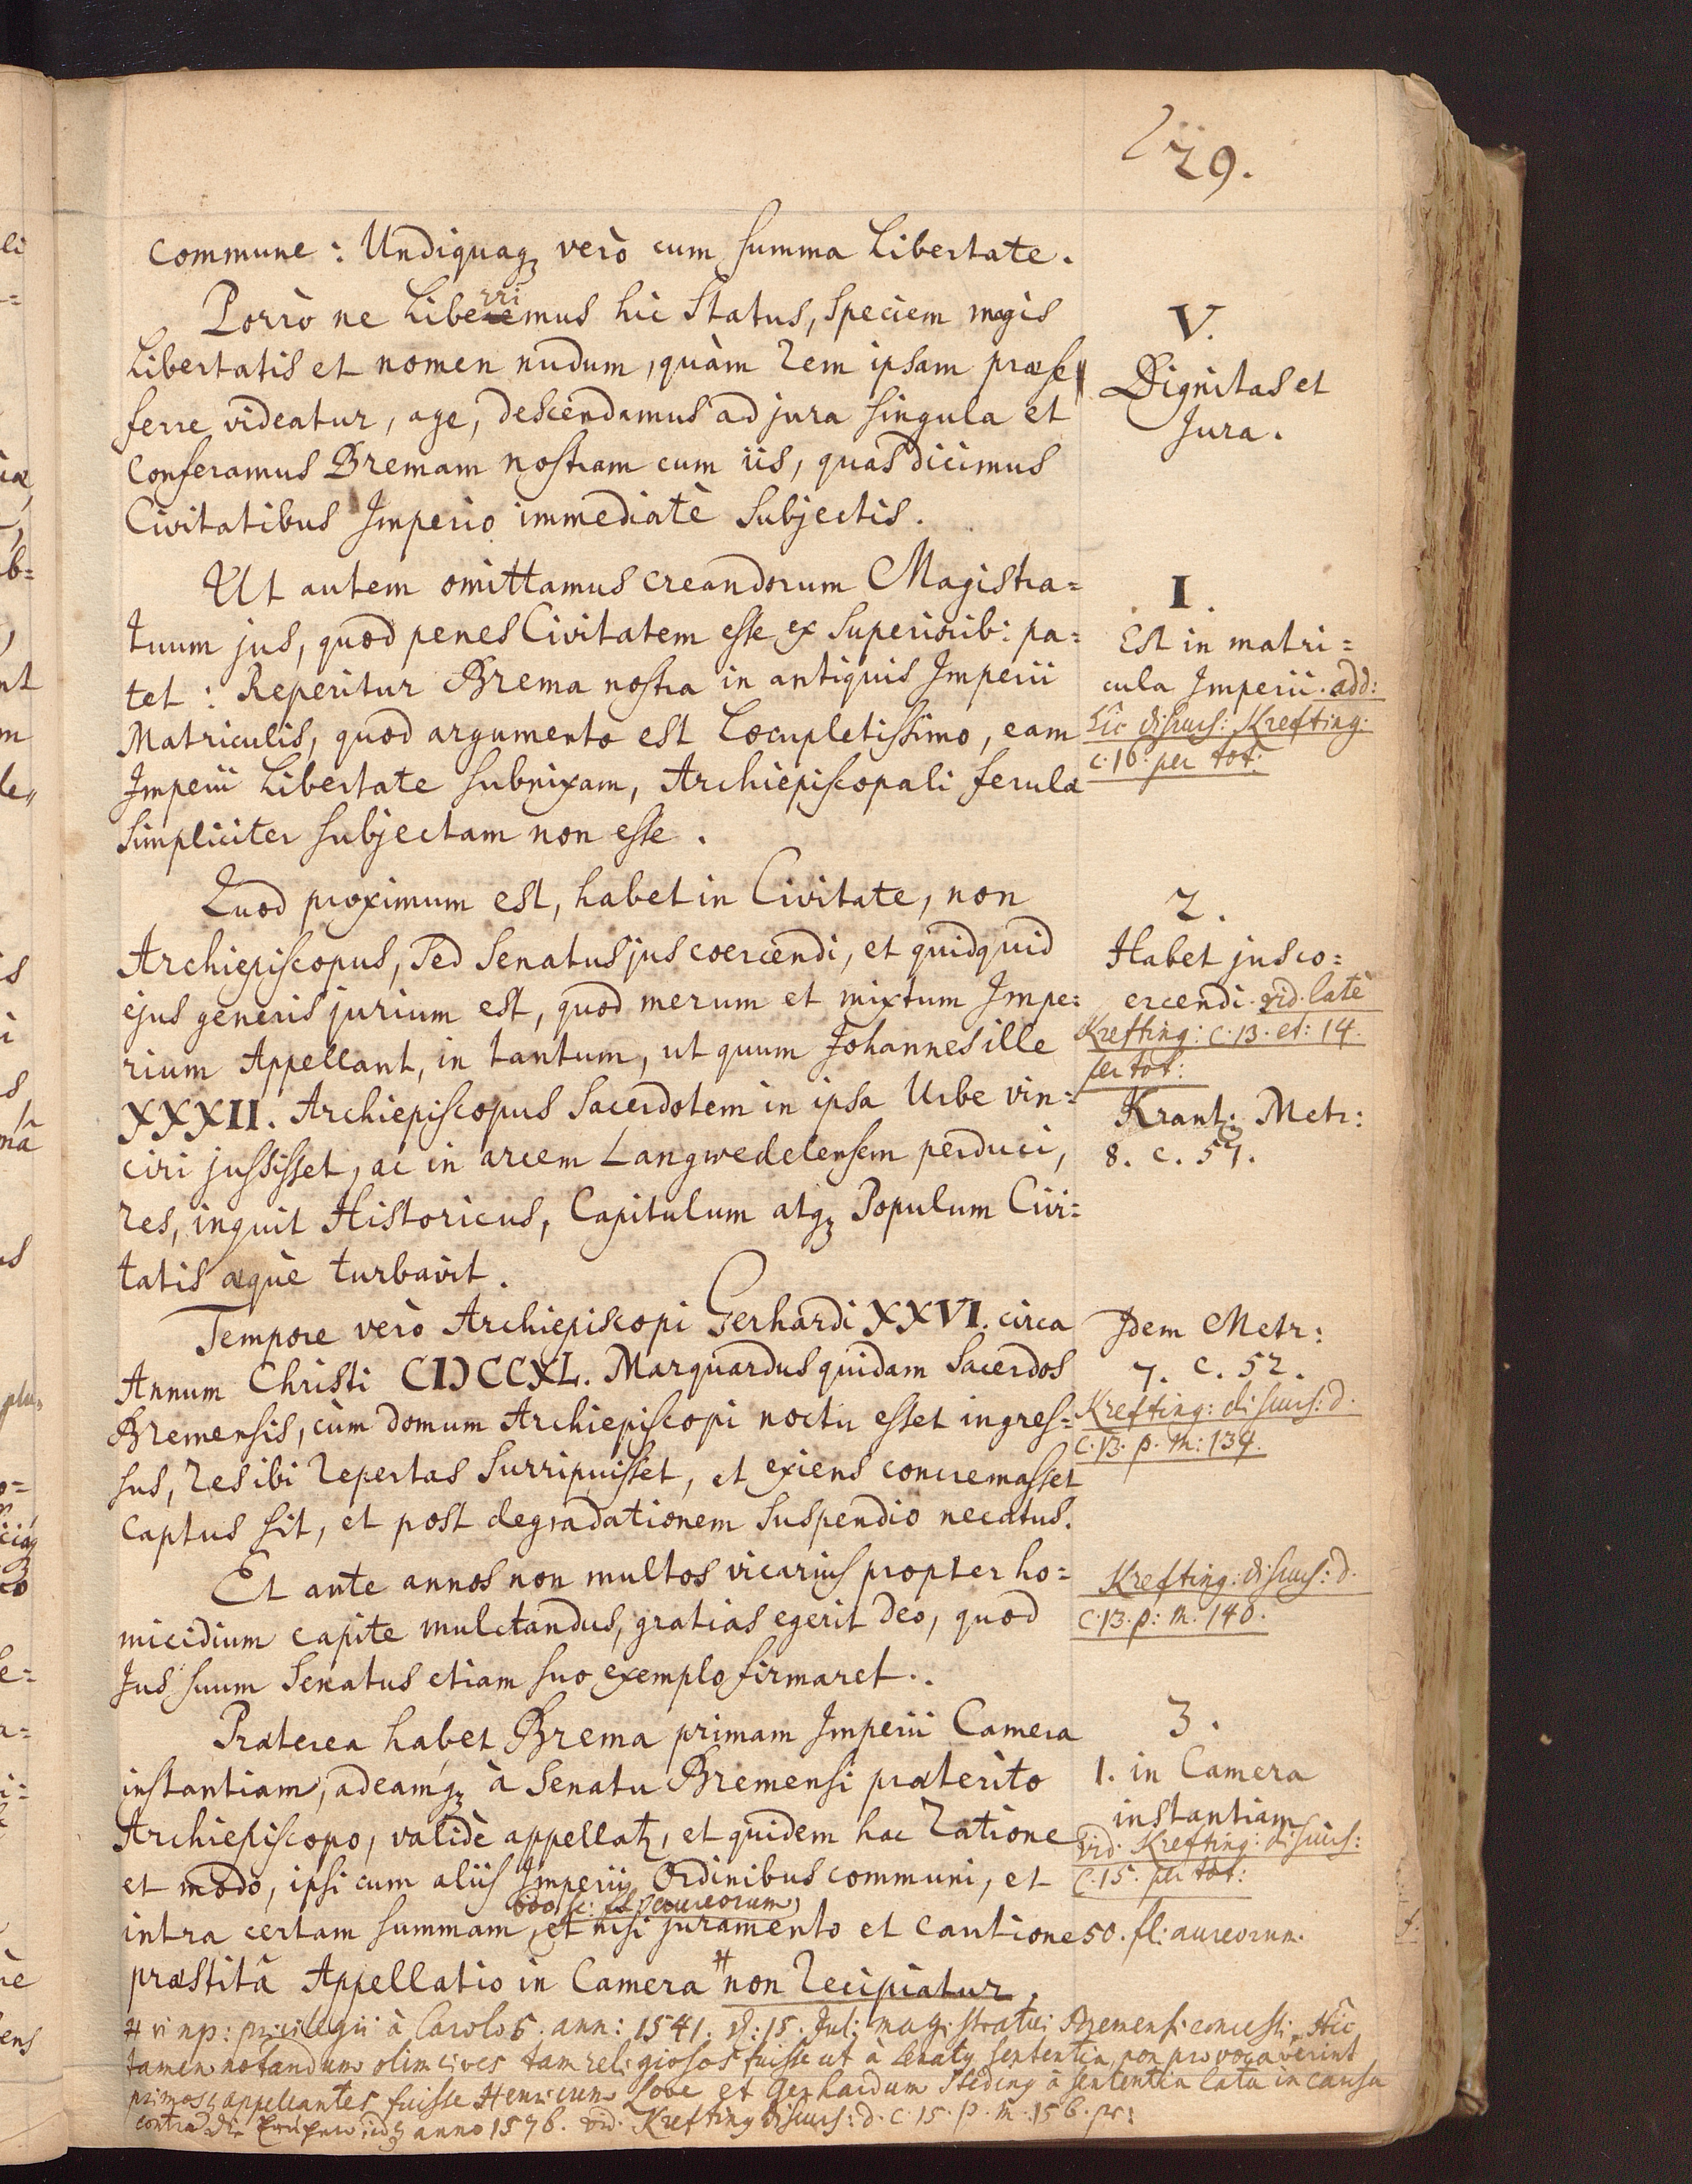 29.
commune: Undiquaq₃ verò cum summa Libertate.
Porrò ne Liberrimus hic Status, speciem magis
Libertatis et nomen nudum, quàm rem ipsam præse
ferre videatur, age, descendamus ad jura singula et
conferamus Bremam nostram cum iis, quas dicimus
Civitatibus Imperio immediatè subjectis.
V.
Dignitas et
Jura.
Ut autem omittamus creandorum Magistra=
tuum jus, quod penes Civitatem esse ex superiorib: pa=
tet: Reperitur Brema nostra in antiquis Imperii
Matriculis, quod argumento est Locupletissimo, eam
Imperii Libertate subnixam, Archiepiscopali ferulæ
simpliciter subjectam non esse.
I.
Est in matri=
cula Imperii. add:
hic discurs: Krefting.
c. 10. per tot:
Quod proximum est, habet in Civitate, non
Archiepiscopus, sed Senatus jus coercendi, et quidquid
ejus generis jurium est, quod merum et mixtum Impe=
rium Appellant, in tantum, ut quum Johannes ille
XXXII. Archiepiscopus Sacerdotem in ipsa Urbe vin=
ciri jussisset, ac in arcem Langwedelensem perduci,
res, inquit Historicus, Capitulum atq₃ Populum Civi=
tatis æquè turbavit.
2.
Habet jus co=
ercendi. vid. latè
Krefting: c. 13. et: 14.
per tot:
Krantz: Metr:
8. c. 57.
Tempore verò Archiepiscopi Gerhardi XXVI. circa
Annum Christi CIƆCCXL. Marquardus quidam Sacerdos
Bremensis, cùm domum Archiepiscopi noctu esset ingres=
sus, res ibi repertas surripuisset, et exiens concremasset
captus sit, et post degradationem suspendio necatus.
Idem Metr:
7. c. 52.
Krefting: discurs: d.
c. 13. p. m: 139.
Et ante annos non multos vicarius propter ho=
micidium capite mulctandus, gratias egerit Deo, quod
Jus suum Senatus etiam suo exemplo firmaret.
Krefting: discurs: d.
c. 13. p: m. 140.
Præterea habet Brema primam Imperii Camera
instantiam, adeamq₃ à Senatu Bremensi præterito
Archiepiscopo, validè appellat, et quidem hac ratione
et modo, ipsi cum aliis Imperii Ordinibus communi, et
intra certam summam, et nisi juramento et cautione
præstitâ Appellatio in Camera # non recipiatur.
3.
1. in Camera
instantiam
vid. Krefting: discurs:
c. 15. per tot:
50. fl: aureorum.
# vi np: privilegii à Carolo 5. ann: 1541. d: 15. Jul: magistratui Bremensi concessi. Hîc
tamen notandum olim cives tam religiosos fuisse ut à Senatus sententia non provocaverint
primosq appellantes fuisse Henricum Love et Gerhardum Steding à sententia lata in causa
contra anno 1576. vid. Krefting discurs: d. c. 15. p. m. 156. pr: